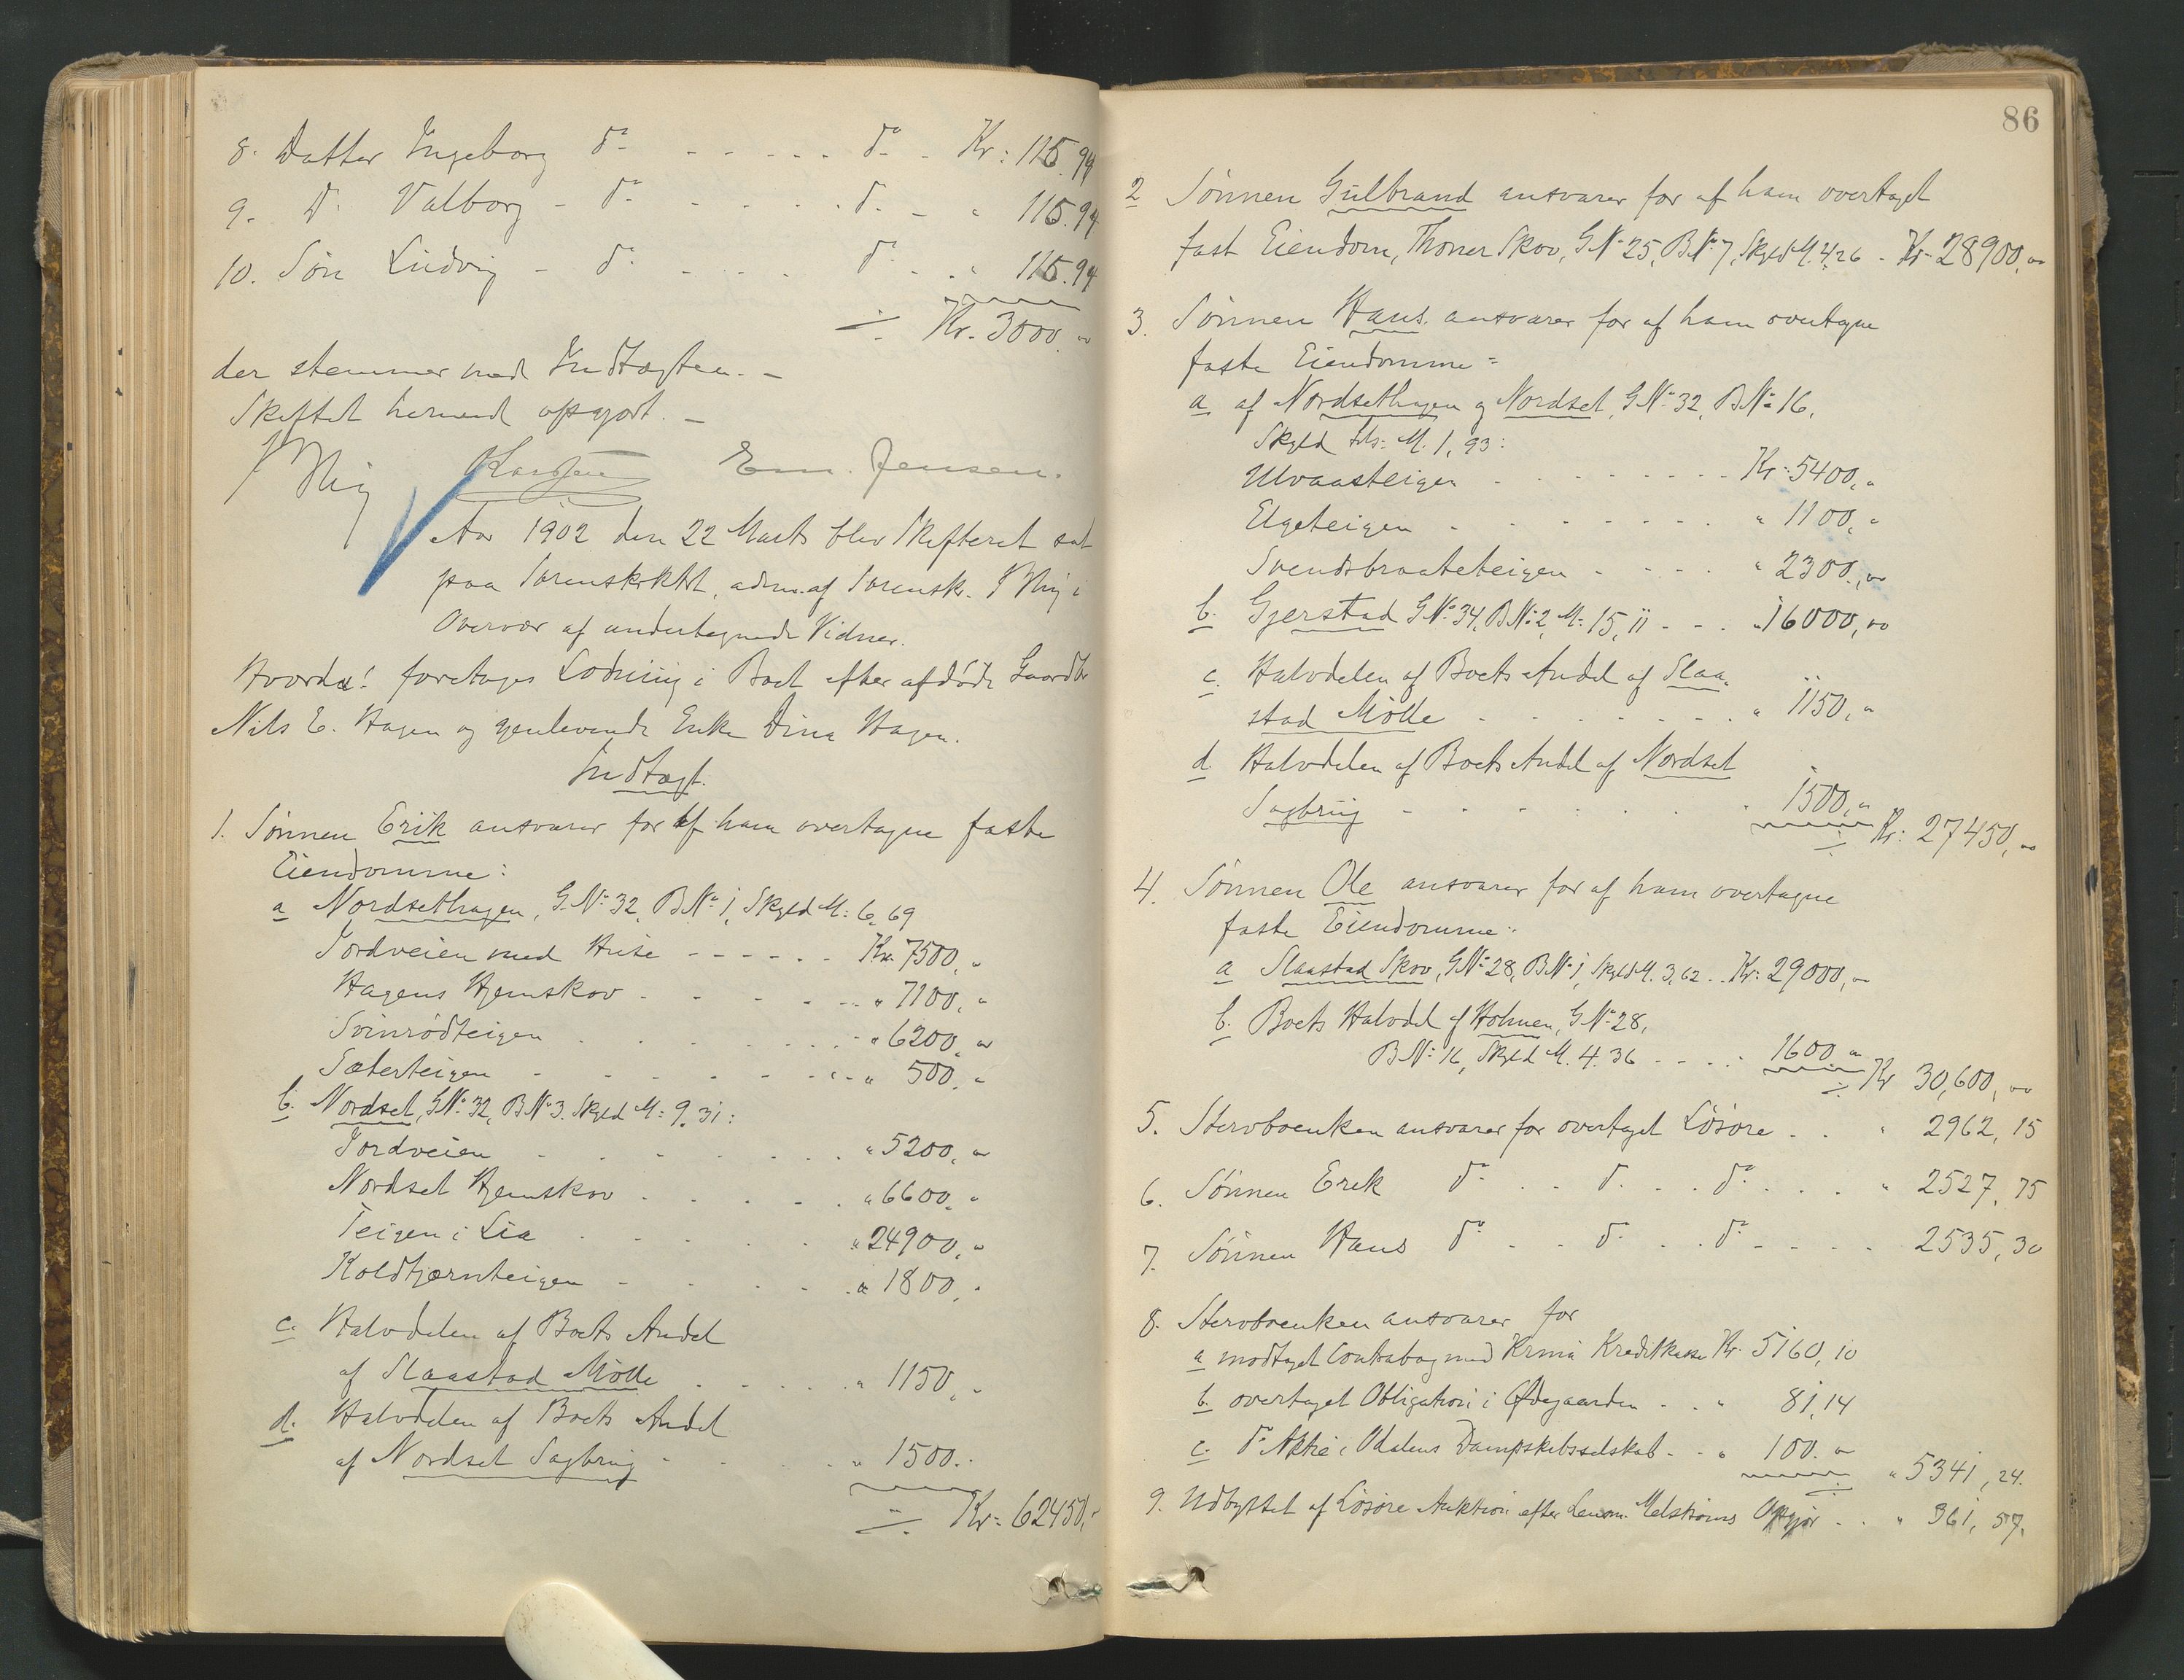 8. Datter Ingeborg do - - - - - do - - Kr: 115.94
9. Do Valborg - do - - - - do - - " 115.94
10. Søn Ludvig - do - - - - do - - " 115.94
÷ Kr. 3000."
der stemmer med Indtægten. -
Skiftet hermed opgjort. -
Em. Jensen.
Aar 1902 den 22 Marts blev Skifteret sat
paa Sorenskrktrt, adm. af Sorensk. i
Overvær af undertegnede Vidner.
Hvorda: foretages Lodning i Boet efter afdøde Gaardbr
Nils E. Hagen og gjenlevende Enke Dina Hagen.
Indtægt.
1. Sønnen Erik ansvarer for af ham overtagne faste
Eiendomme:
a Nordsethagen, G.No 32, BNo 1, Skyld M: 6.69
Jordveien med Huse - - - - - - Kr. 7500, "
Hagens Hjemskov - - - - - - " 7100, "
Svinrødteigen - - - - - - " 6200, "
Sæterteigen - - - - - - " 500, "
b. Nordset, GNo 32, BNo 3. Skyld M: 9.31:
Jordveien - - - - - - " 5200, "
Nordset Hjemskov - - - - - " 6600, "
Teigen i Lia - - - - - " 24900, "
Koldtjærnteigen - - - - " 1800, "
c. Halvdelen af Boets Andel
af Slaastad Mölle - - - - - " 1150, "
d. Halvdelen af Boets Andel
af Nordset Sagbrug - - - - " 1500. "
÷ Kr: 62450, "
86
2 Sønnen Gulbrand ansvarer for af ham overtaget
fast Eiendom, Thoner Skov, GNo 25, BNo 7, Skyld M. 4.26 - Kr 28900, "
3. Sønnen Hans ansvarer for af ham overtagne
faste Eiendomme:
a af Nordsethagen og Nordset, GNo 32, BNo 16,
Skyld tils: M. 1,93:
Ulvaasteigen - - - - - - - Kr: 5400, "
Elgeteigen - - - - - - - " 1100, "
Svendsbraateteigen - - - - " 2300, "
b. Gjerstad GNo 34, BNo 2, M: 15,11 - - - " 16000, "
c. Halvdelen af Boets Andel af Slaa-
stad Mölle - - - - - - - " 1150, "
d Halvdelen af Boets Andel af Nordset
Sagbrug - - - - - - " 1500, "
÷ Kr: 27450, "
4. Sønnen Ole ansvarer for af ham overtagne
faste Eiendomme:
a Slaastad Skov, GNo 28, BNo 1, Skyld M. 3,62 - - Kr: 29000, "
b. Boets Halvdel af Holmen, GNo 28,
BNo 16, Skyld M. 4.36 - - - - 1600 "
÷ Kr 30,600, "
5. Stervboenken ansvarer for overtaget Løsøre - - " 2962, 15
6. Sønnen Erik do - - do - - do - - - " 2527, 75
7. Sønnen Hans do - - do - - do - - - - 2535, 30
8. Stervboenken ansvarer for
a modtaget Contrabog med Krnia Kreditkasse Kr. 5160, 10
b. overtaget Obligation i Ødegaarden - - " 81,14
c. do Aktie i Odalens Dampskibsselskab - - " 100. "
÷ " 5341, 24.
9. Udbyttet af Løsøre Auktion efter Lensm. Melstrøms Opgjør - - " 361, 57.